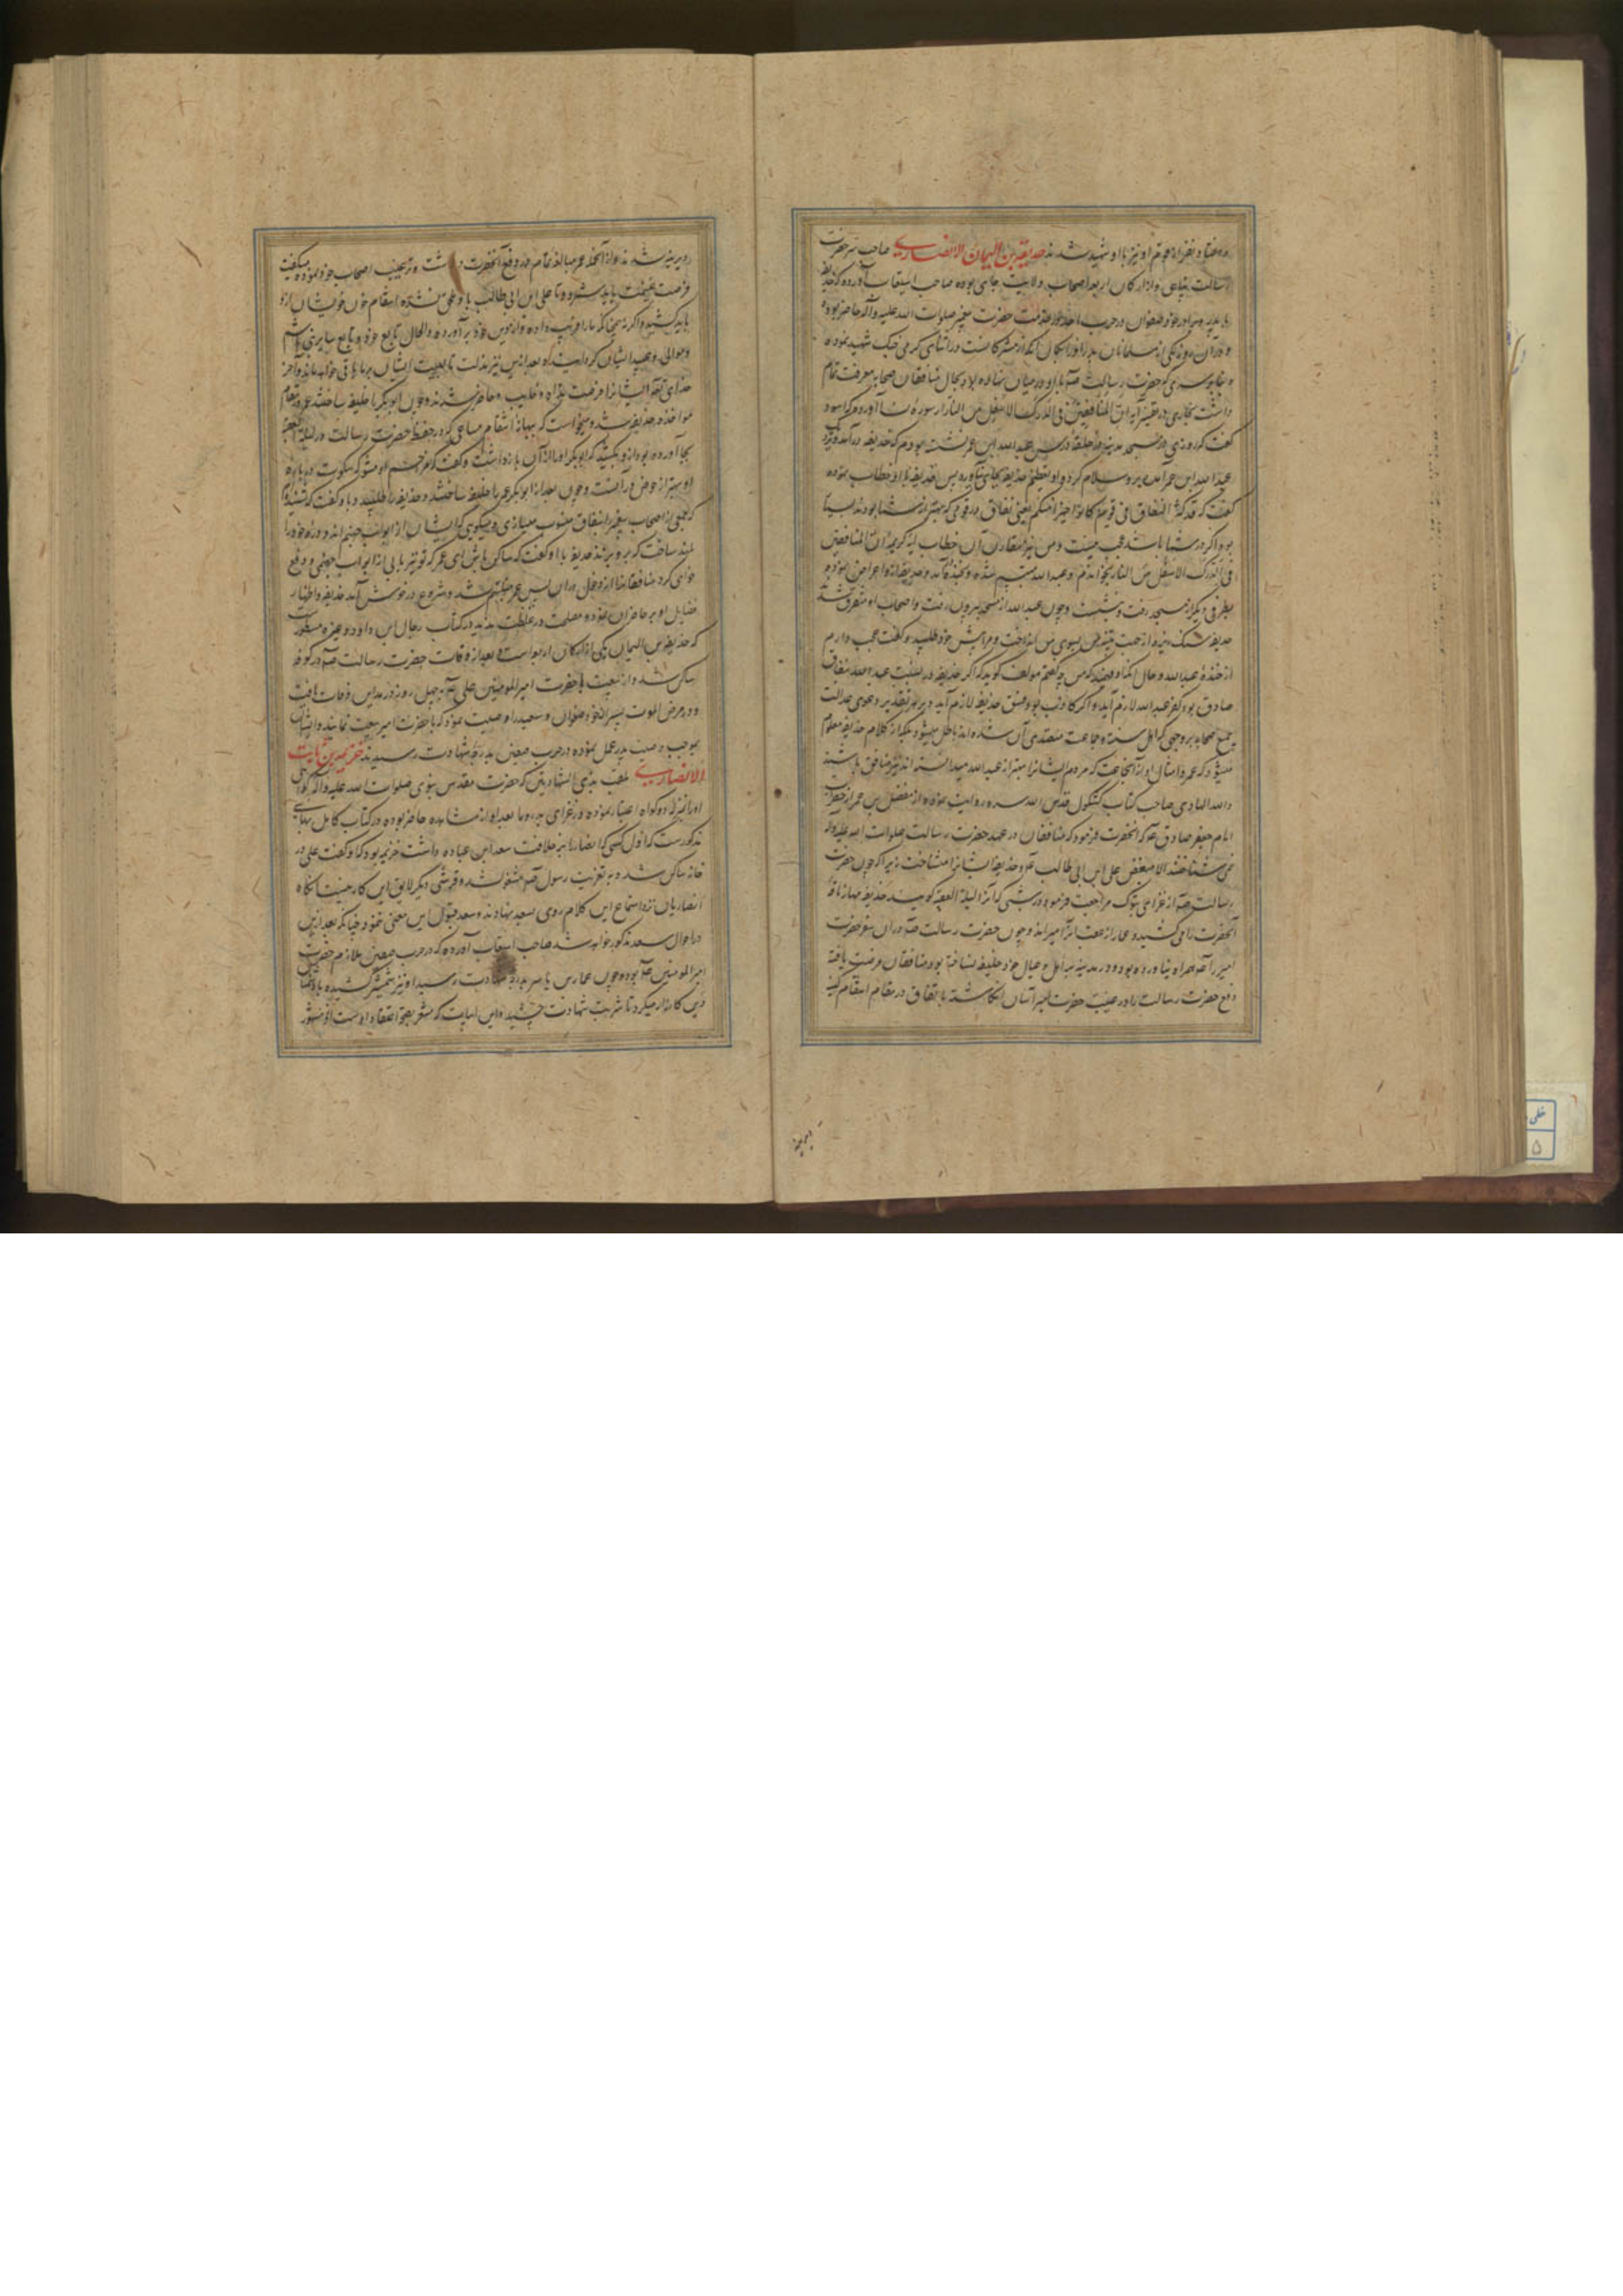 و هفتاد نفر از قوم او نیز با او شهید شدند حذیفة بن الیمان الانصاری صاحب سر حضرت
رسالت پناهی و از ارکان اربعه اصحاب ولایت جاهی بوده صاحب استیعاب آورده که حذیفه
با پدر و برادر خود صفوان در حرب احد در خدمت حضرت پیغمبر صلوات الله علیه و آله حاضر بوده
و در آن روز یکی از مسلمانان پدر او را بگمان آنکه از مشرکانست در اثنای گرمی جنک شهید نموده
و بنا بر سری که حضرت رسالت صم با او در میان نهاده بود بحال منافقان صحابه معرفت تمام
داشت بخاری در تفسیر آیه ان المنافقین فی الدرک الاسفل من النار از سوره نسا آورده که اسود
گفت که روزی در مسجد مدینه در حلقه درس عبد الله ابن عمر نشسته بودم که حذیفه درآمد و نزد
عبد الله ابن عمر آمده برو سلام کرد و او تعظیم حذیفه بجای نیاورد پس حذیفه با او خطاب نموده
گفت که قد کره النفاق فی قوم کانوا خیرا منکم یعنی نفاق در قومی که بهتر از شما بودند بسیار
بود اگر در شما باشد عجب نیست و من نیز مقارن آن خطاب آیه کریمه ان المنافقین
فی الدرک الاسفل من النار بخواندم و عبد الله متبسم شده و بخنده آمد و حذیفه از او اعراض نموده
بطرفی دیگر از مسجد رفت و نشست و چون عبد الله از مسجد بیرون رفت و اصحاب او متفرق شدند
حذیفه سنک ریزه از جهت تنبیه من بسوی من انداخت و مرا پیش خود طلبید و گفت عجب دارم
از خنده عبد الله و حال آنکه او فهمید که من چه گفتم مولف گوید که اگر حذیفه در نسبت عبد الله بنفاق
صادق بود کفر عبد الله لازم آید و اگر کاذب بود فسق حذیفه لازم آید و بر هر تقدیر دعوی عدالت
جمیع صحابه بر وجهی که اهل سنت و جماعت معتقدی آن شده اند باطل میشود بلکه از کلام حذیفه معلوم
میشود که عمر و امثال او از آن جماعت که مردم ایشانرا بهتر از عبد الله میدانسته اند نیز منافق باشند
والله الهادی صاحب کتاب کشکول قدس الله سره روایت نموده از مفضل بن عمر از حضرت
امام جعفر صادق عم که آنحضرت فرمود که منافقان در عهد حضرت رسالت صلوات الله علیه و آله
نمی شناختند الا ببغض علی ابن ابی طالب عم و حذیفه ایشانرا میشناخت زیرا که چون حضرت
رسالت صم از غزای تبوک مراجعت فرمود در شبی که آنرا لیلة العقبه گویند حذیفه مهار ناقه
آنحضرت را می کشید و عمار از عقب آنرا میراند و چون حضرت رسالت صم در آن سفر حضرت
امیر را همراه نیاورده بود و در مدینه بر اهل و عیال خود خلیفه ساخته بود منافقان فرصت یافته
دفع حضرت رسالت را در غیبت حضرت امیر آسان انگاشته باتفاق در مقام انتقام کینه
دیرینه شدند و از آنجمله عمر مبالغه تمام در دفع آنحضرت داشت و ترغیب اصحاب خود نموده میگفت
فرصت غنیمت باید شمرد و تا علی ابن ابی طالب باو ملحق نشده انتقام خون خویشان ازو
باید کشید و اگر نه چنانکه ما را فریب داده و از دین خود برآورده و الحال تابع خود و تابع سایر بنی هاشم
و موالی و عبید ایشان گردانیده بعد ازین نیز مذلت تابعیت ایشان بر ما باقی خواهد ماند و آخر
خدای تعالی ایشانرا فرصت نداد و خایب و خاسر شدند و چون ابو بکر را خلیفه ساختند عمر در مقام
مواخذه حذیفه شد و میخواست که بهانه انتقام مساعی که در حفظ حضرت رسالت در لیلة العقبه
بجا آورده بود ازو بکشد که ابو بکر او را از آن بازداشت و گفت که
او بهتر از خوض در آنست و چون بعد از ابو بکر عمر را خلیفه ساختند حذیفه را طلبید و با او گفت که شنیدم
که جمعی از اصحاب پیغمبر را بنفاق منسوب میسازی و میگویی که ایشان از ابواب جهنم اند و دره خود را
بلند ساخت که بر وی زند حذیفه با او گفت که ساکن باش ای عمر که تو نیز بابی از ابواب جهنمی و دفع
خواهی کرد منافقان را از دخول در آن پس عمر متبسم شد و شروع در خوش آمد حذیفه و اظهار
فضایل او بر حاضران نموده مصلحت در غلظت ندید در کتاب رجال ابن داود و غیره مسطور است
که حذیفه بن الیمان یکی از ارکان اربعه است و بعد از وفات حضرت رسالت صم در کوفه
ساکن شد و از بیعت با حضرت امیر المومنین علی عم به چهل روز در مداین وفات یافت
و در مرض الموت پسران خود صفوان و سعید را وصیت نمود که با حضرت امیر بیعت نمایند و ایشان
بموجب وصیت پدر عمل نموده در حرب صفین بدرجه شهادت رسیدند خزیمة بن ثابت
الانصاری ملقب بذی الشهادتین که حضرت مقدس نبوی صلوات الله علیه و آله گواهی
او را بمنزله دو گواه اعتبار نموده در غزای بدر و ما بعد او از مشاهد حاضر بوده در کتاب کامل بهایی
مذکورست که اول کسی که انصار را بر خلافت سعد ابن عباده داشت خزیمه بود که او گفت علی در
خانه ساکن شده و به تعزیت رسول صم مشغول شد و قرشی دیگر لایق این کار نیست آنگاه
انصاریان نزد استماع این کلام روی بسعد نهادند و سعد قبول این معنی ننمود چنانکه بعد ازین
در احوال سعد مذکور خواهد شد صاحب استیعاب آورده که در حرب صفین ملازم حضرت
امیر المومنین عم بود و چون عمار بن یاسر بدرجه شهادت رسید او نیز شمشیر کشیده با دشمنان
دین کارزار میکرد تا شربت شهادت چشید و این ابیات که مشعر بحق اعتقاد اوست ازو مشهور
دیرینه
خطی
۵